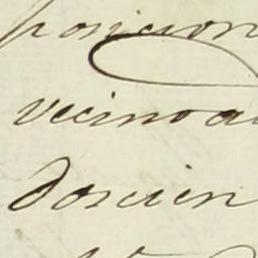 posicion
vecino a
doscien